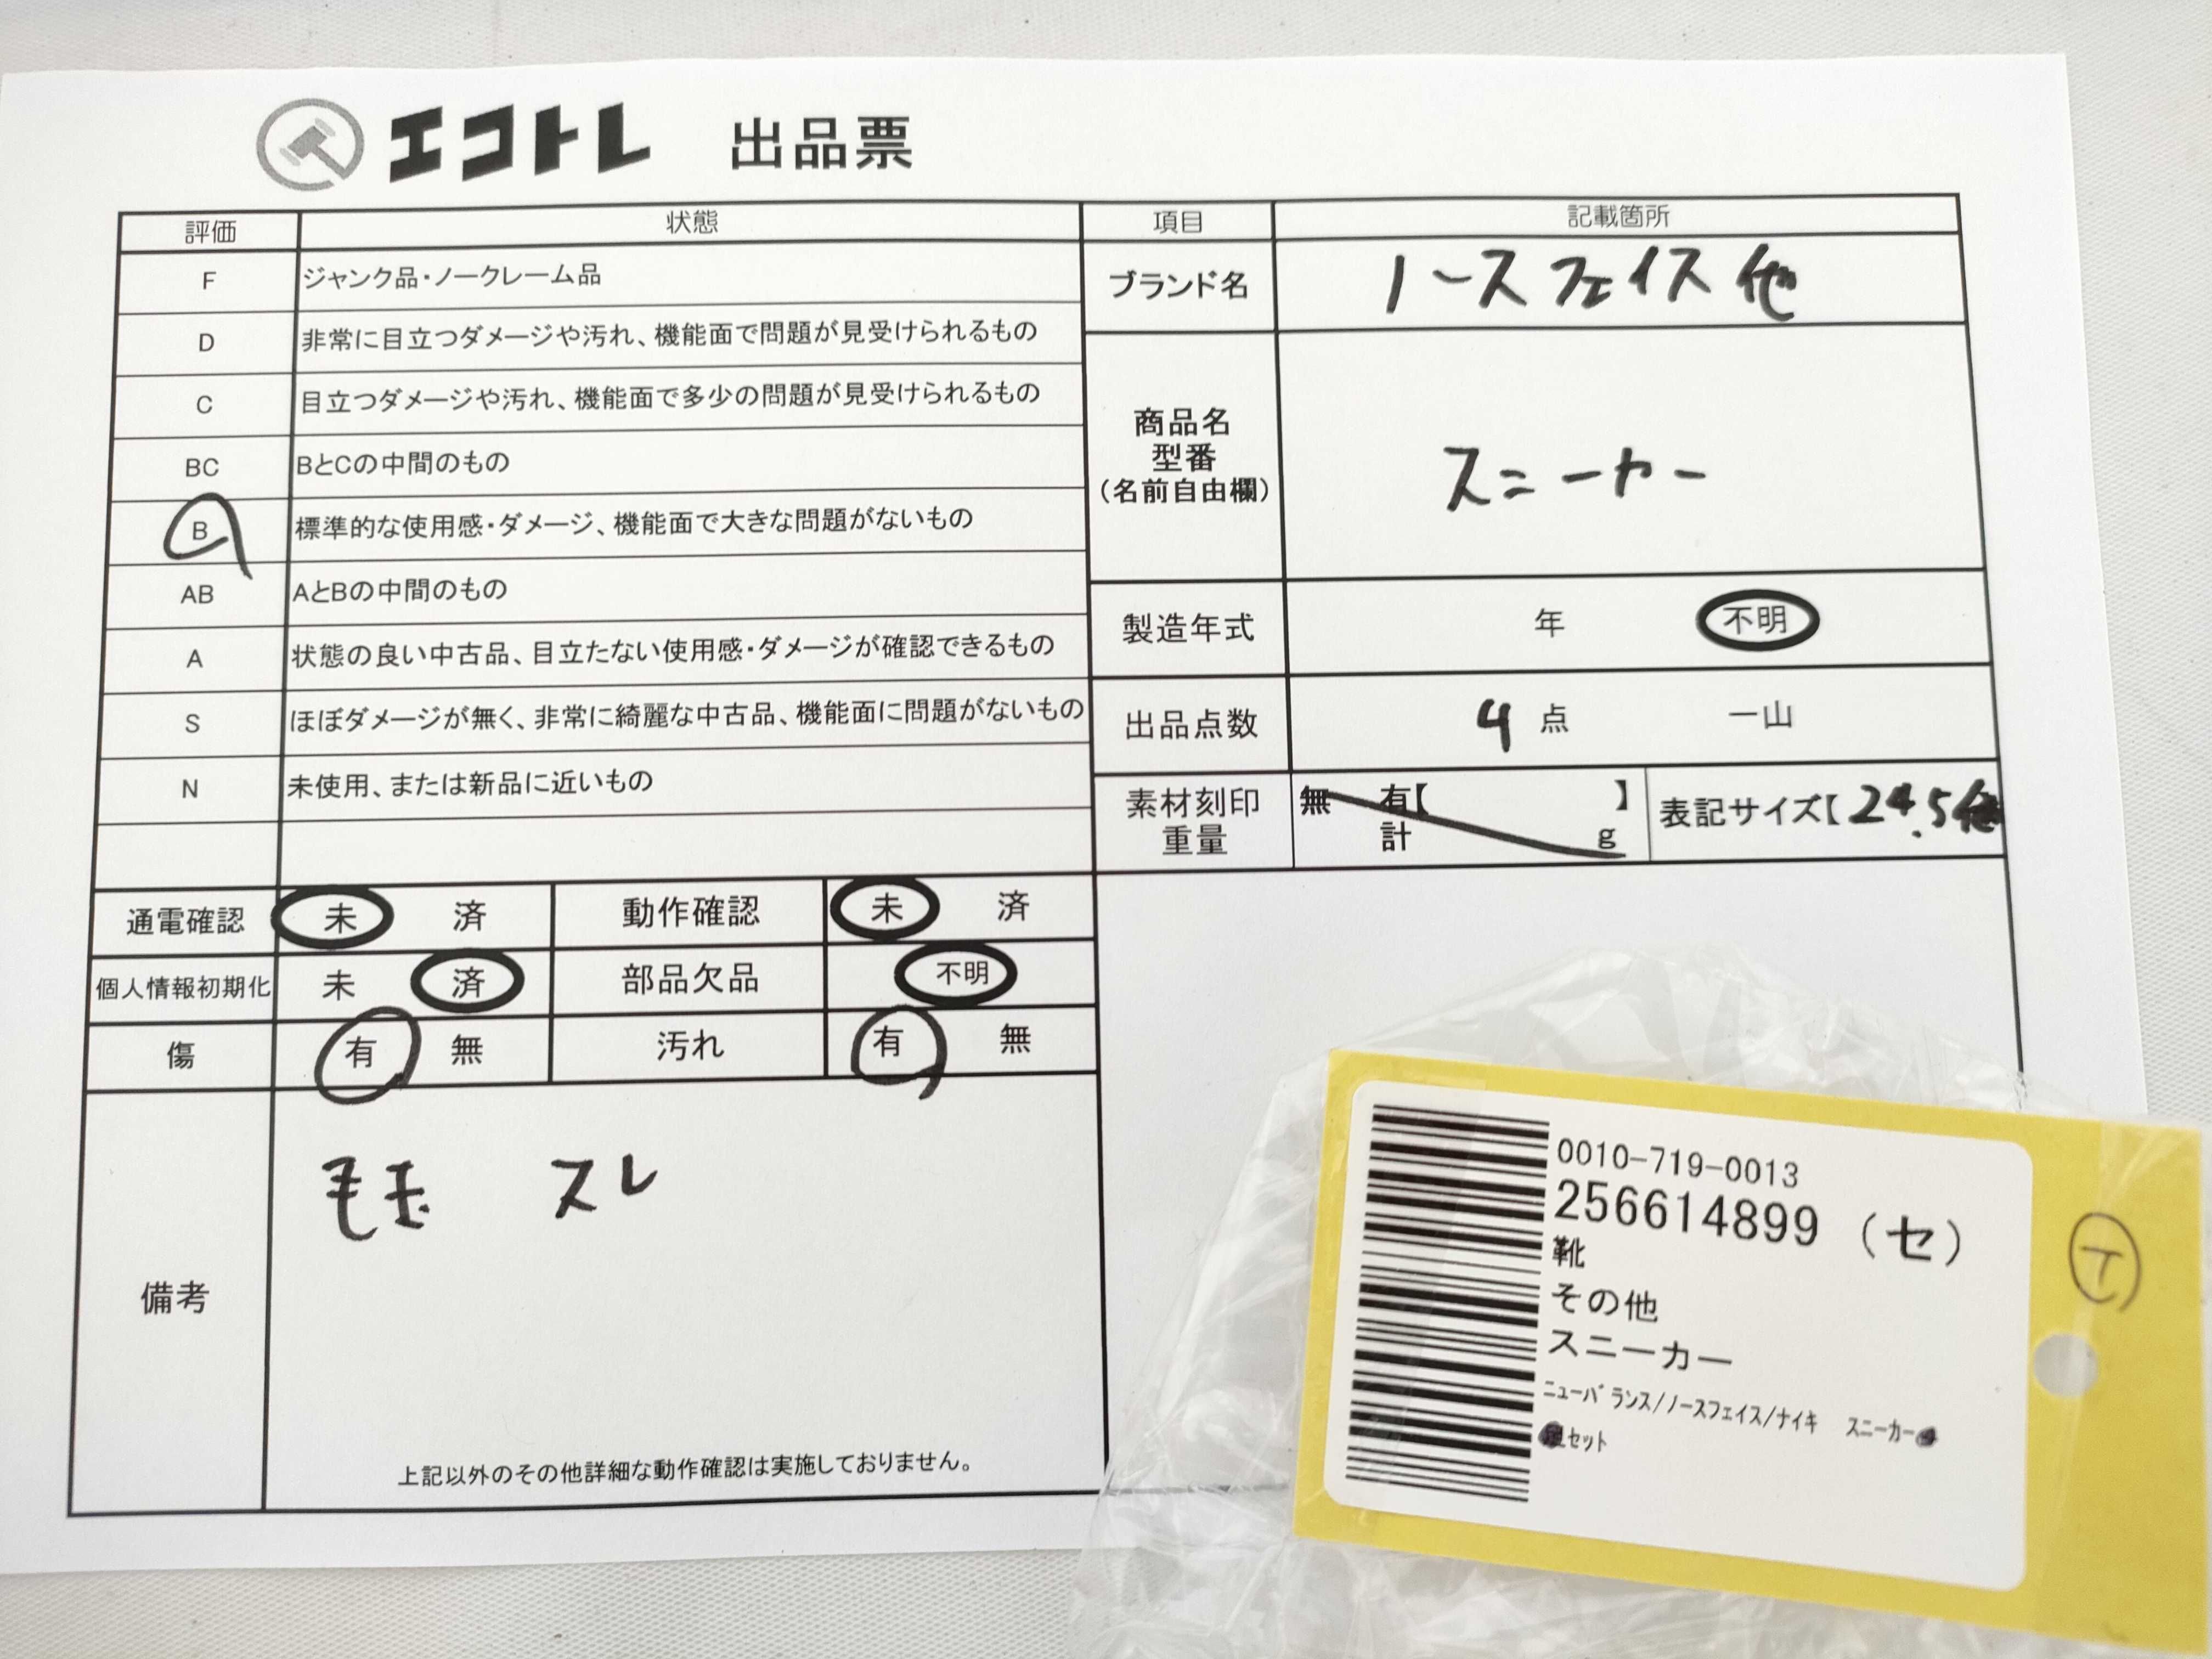 エコトレ 出品票
評価 状態 項目 記載箇所
F ジャンク品・ノークレーム品
D 非常に目立つダメージや汚れ、機能面で問題が見受けられるもの
C 目立つダメージや汚れ、機能面で多少の問題が見受けられるもの
BC BとCの中間のもの
B 標準的な使用感・ダメージ、機能面で大きな問題がないもの
AB AとBの中間のもの
A 状態の良い中古品、目立たない使用感・ダメージが確認できるもの
S ほぼダメージが無く、非常に綺麗な中古品、機能面に問題がないもの
N 未使用、または新品に近いもの
ブランド名 ノースフェイス他
商品名
型番
(名前自由欄)
スニーカー
製造年式 年 不明
出品点数 4 点 一山
素材刻印 無 有【 】
重量 計 g
表記サイズ【24.5他
通電確認 未 済 動作確認 未 済
個人情報初期化 未 済 部品欠品 不明
傷 有 無 汚れ 有 無
備考
毛玉 スレ
上記以外のその他詳細な動作確認は実施しておりません。
0010-719-0013
256614899 (セ)
靴
その他
スニーカー
ﾆｭｰﾊﾞﾗﾝｽ/ﾉｰｽﾌｪｲｽ/ﾅｲｷ ｽﾆｰｶｰ
ｾｯﾄ